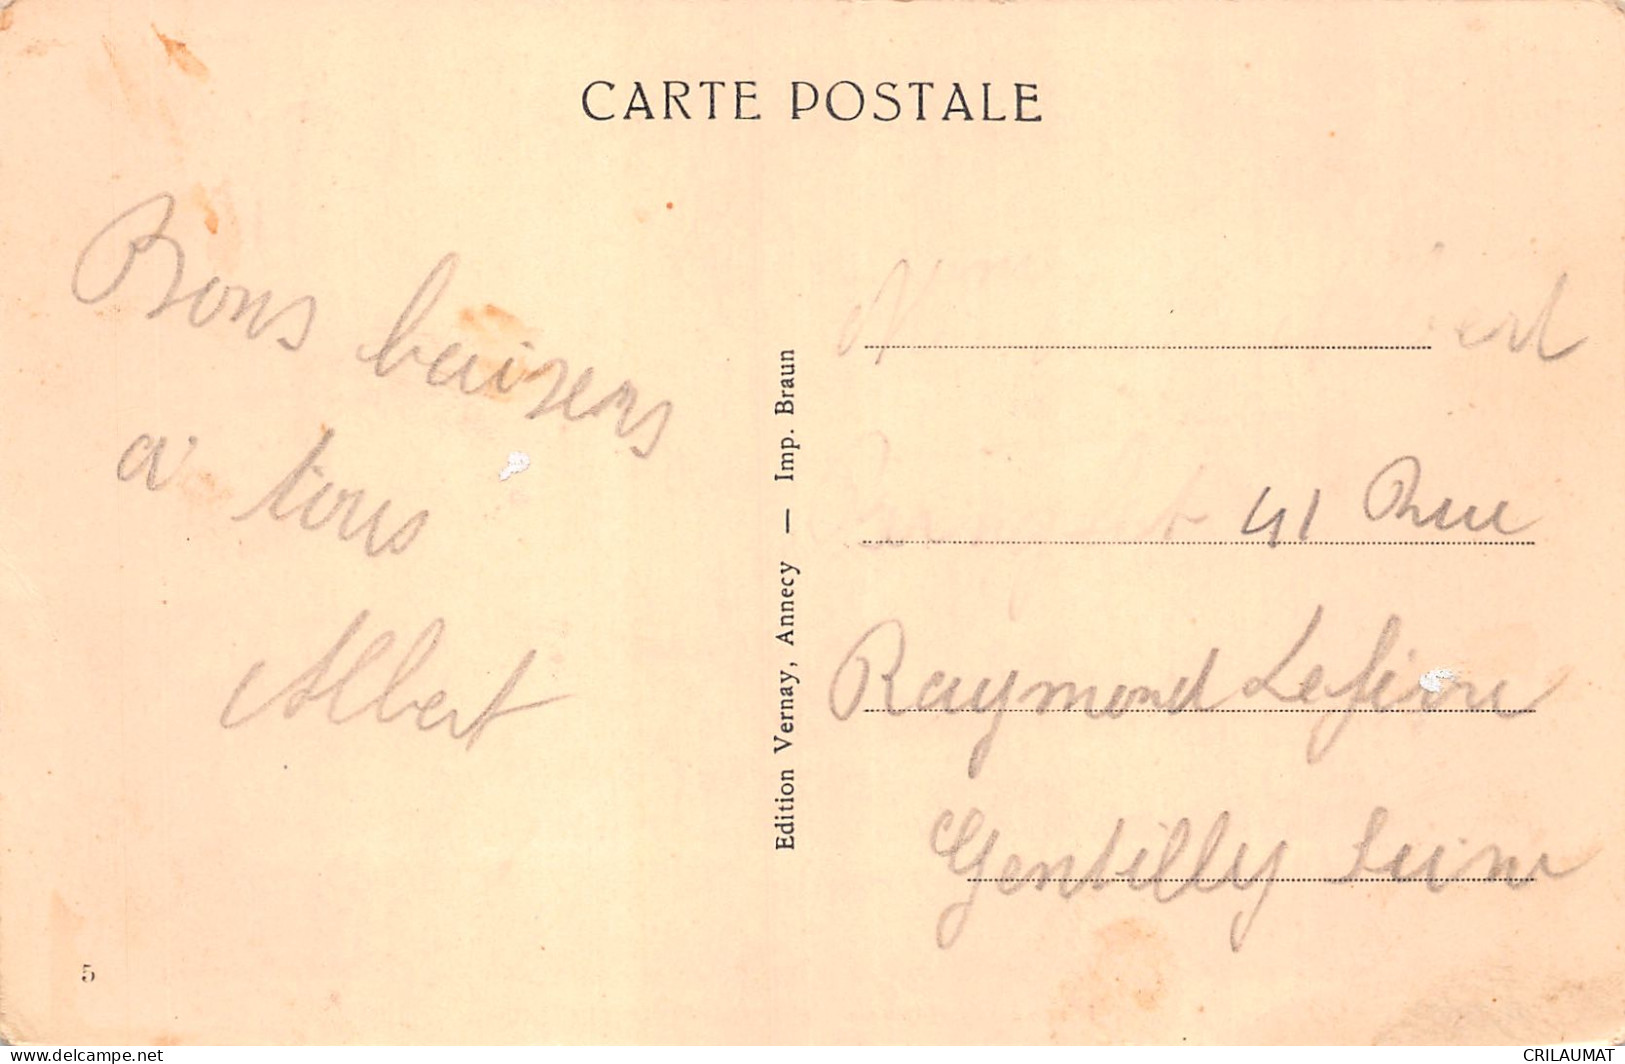 CARTE POSTALE
Bons baisers
à tous
Albert
Edition Vernay, Annecy — Imp. Braun
41 Rue
Raymond Lefièvre
Gentilly Seine
5
www.delcampe.net
CRILAUMAT